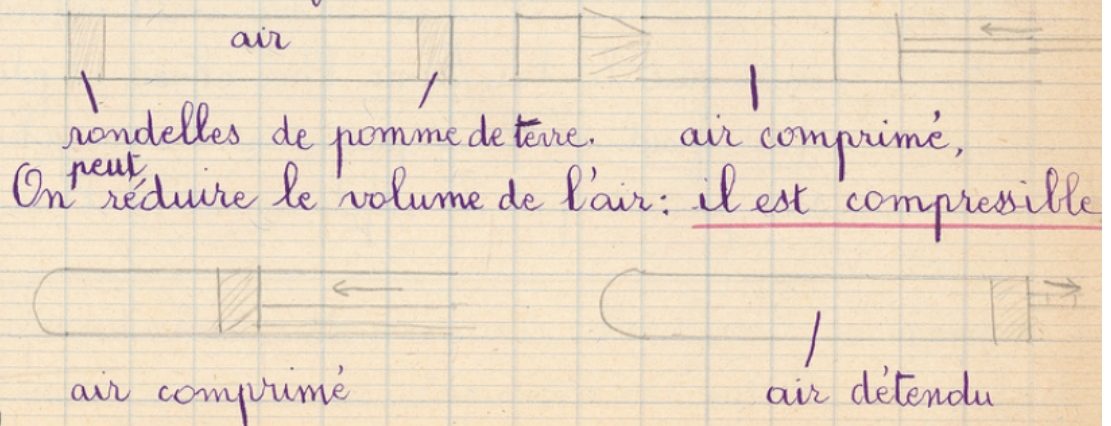 air
rondelles de pomme de terre. air comprimé,
peut
On réduire le volume de l'air: il est compressible
air comprimé
air détendu